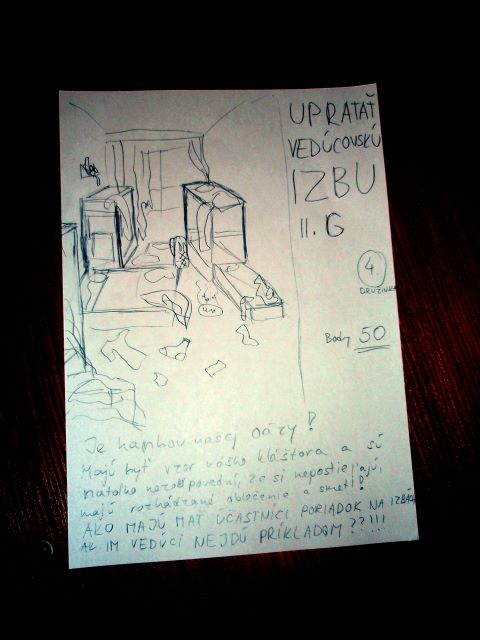 UPRATAŤ
VEDÚCOVSKÚ
IZBU
II. G
4.
DRUŽINKA
Body 50
Je hanbou našej oázy!
Majú byť vzor nášho kláštora a sú
natoľko nezodpovední, že si nepostieľajú,
majú rozhádzané oblečenie a smeti!
AKO MAJÚ MAŤ ÚČASTNÍCI PORIADOK NA IZBÁCH,
AK IM VEDÚCI NEJDÚ PRÍKLADOM??!!!